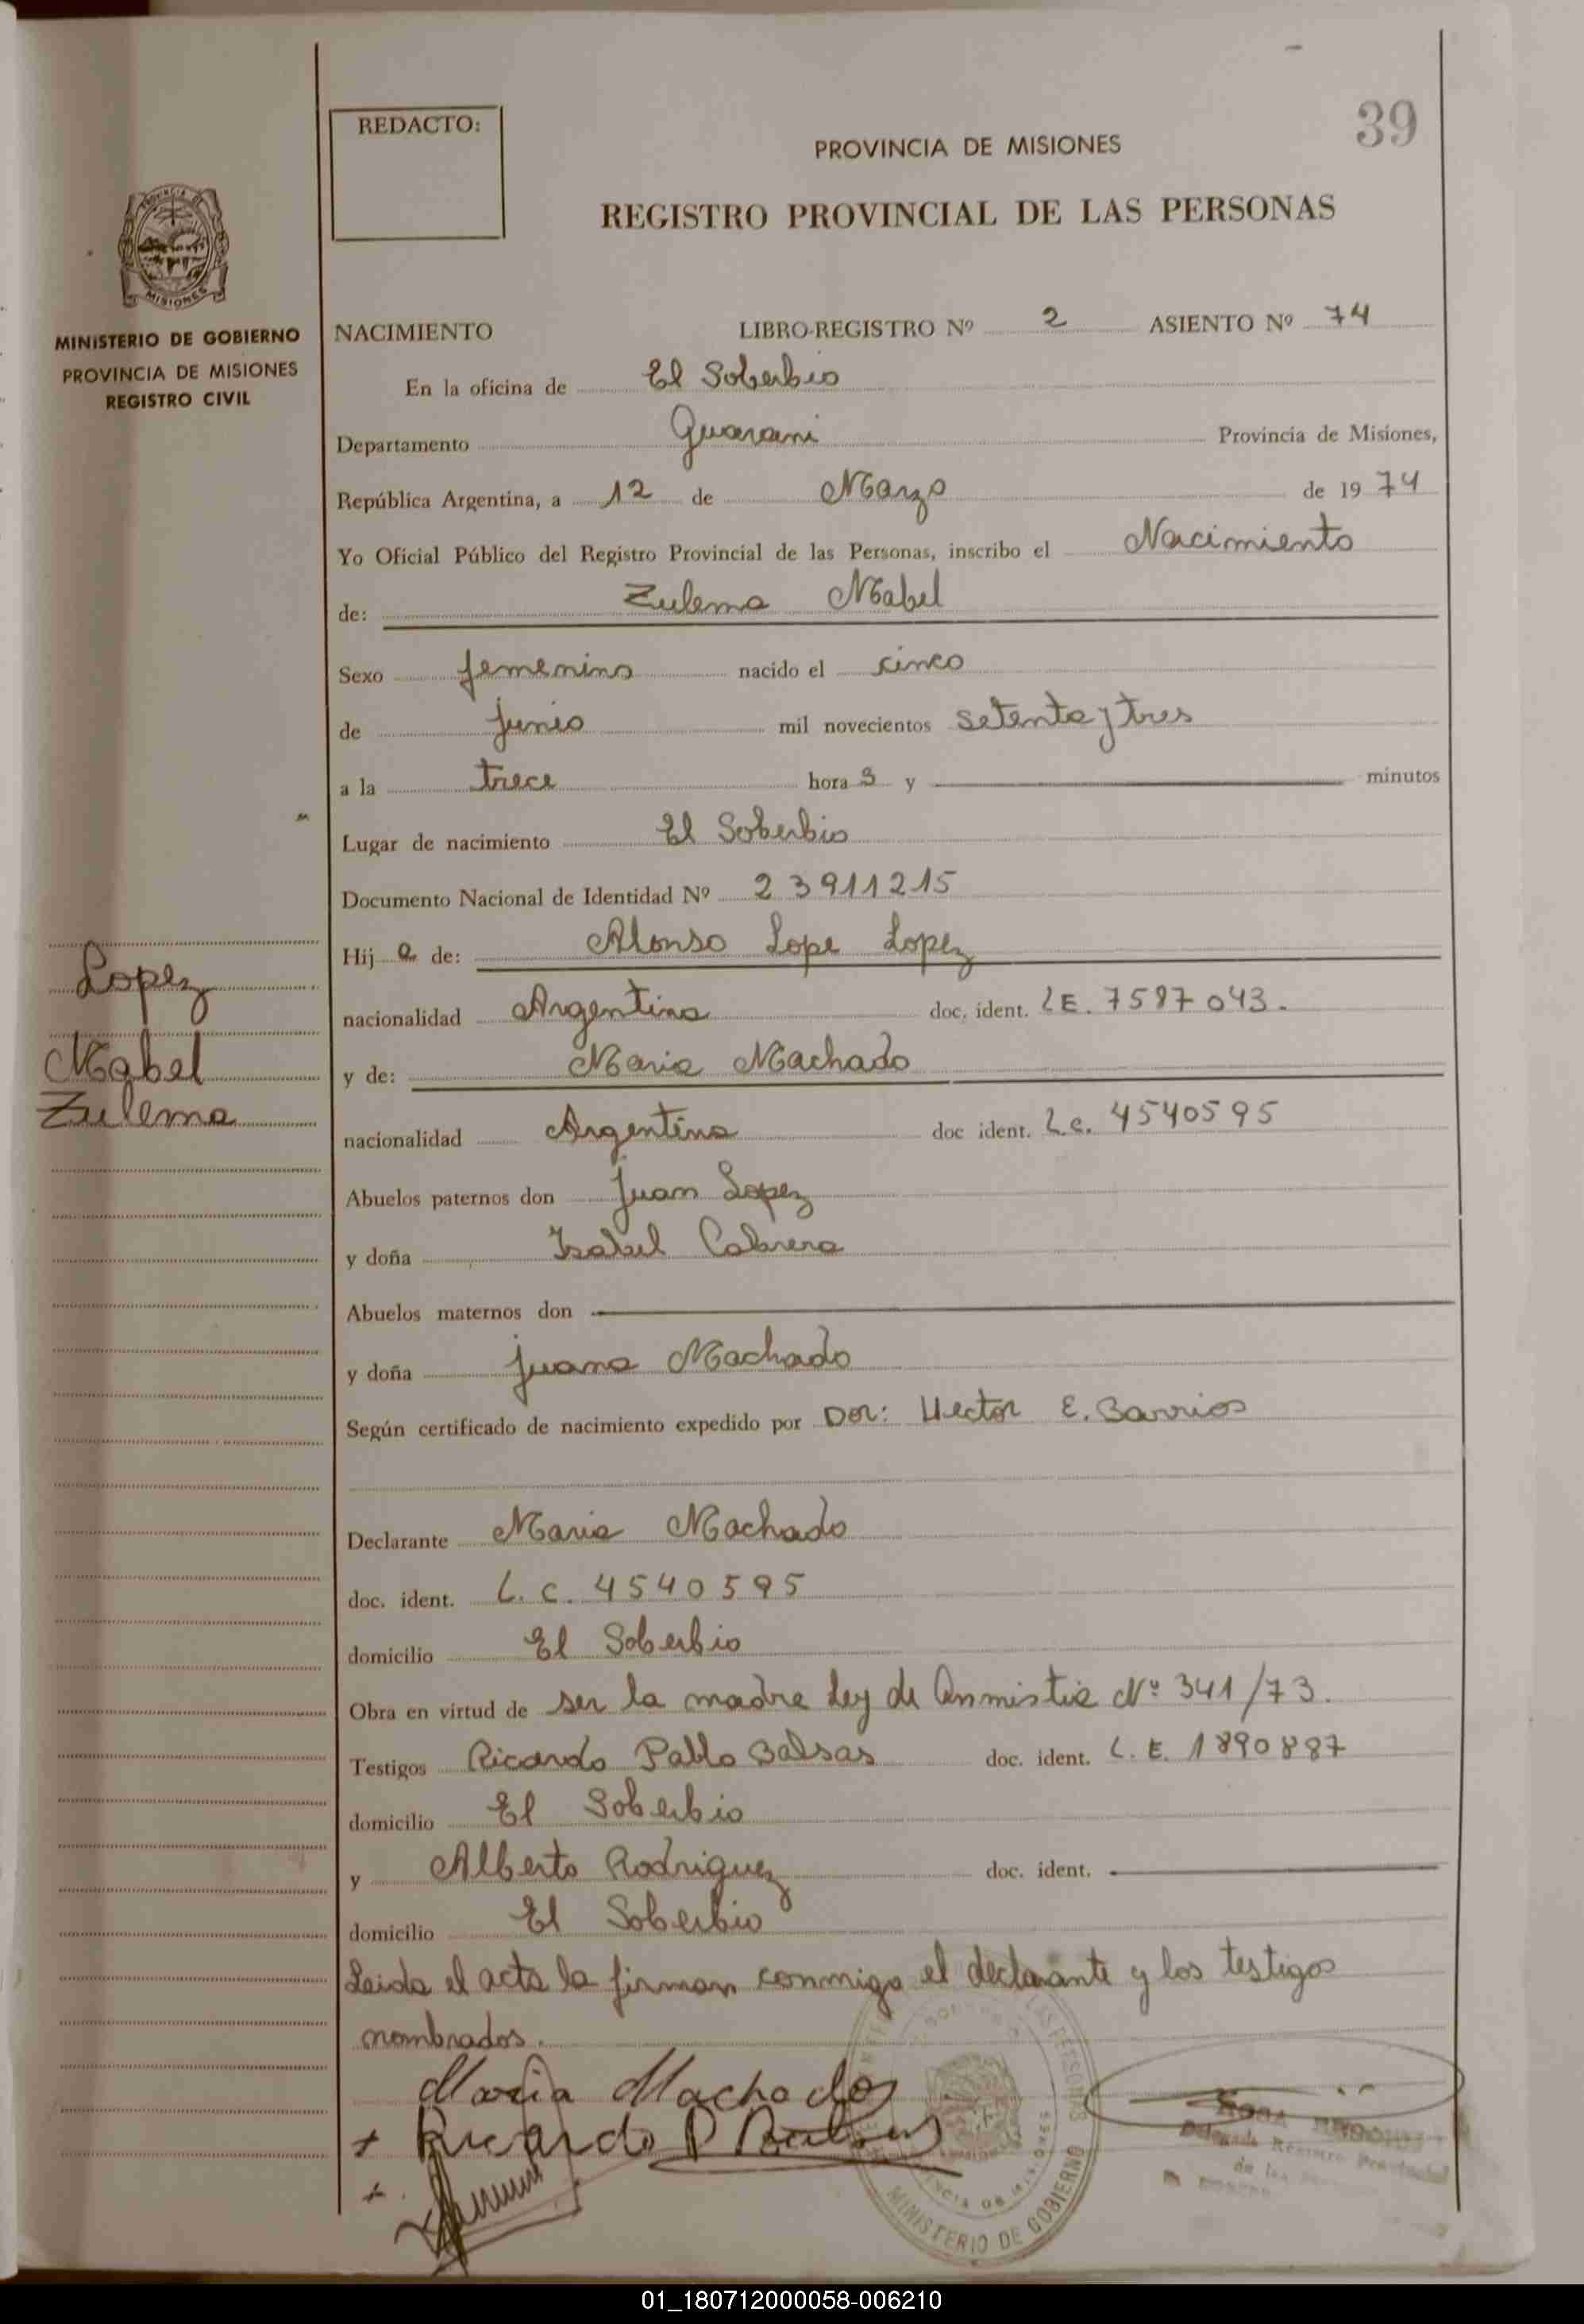 39
REDACTO:
PROVINCIA DE MISIONES
REGISTRO PROVINCIAL DE LAS PERSONAS
MISIONES
MINISTERIO DE GOBIERNO
PROVINCIA DE MISIONES
REGISTRO CIVIL
NACIMIENTO LIBRO-REGISTRO Nº 2 ASIENTO Nº 74
En la oficina de El Soberbio
Departamento Guarani Provincia de Misiones,
República Argentina, a 12 de Marzo de 1974
Yo Oficial Público del Registro Provincial de las Personas, inscribo el Nacimiento
de: Zulema Mabel
Sexo femenino nacido el cinco
de junio mil novecientos setenta y tres
a la trece hora s y minutos
Lugar de nacimiento El Soberbio
Documento Nacional de Identidad Nº 23911215
Hij a de: Alonso Lope Lopez
nacionalidad Argentina doc. ident. LE. 7587043.
y de: Maria Machado
nacionalidad Argentina doc ident. L.C. 4540595
Lopez
Mabel
Zulema
Abuelos paternos don Juan Lopez
y doña Isabel Cabrera
Abuelos maternos don
y doña Juana Machado
Según certificado de nacimiento expedido por Dor: Hector E. Barrios
Declarante Maria Machado
doc. ident. L.C. 4540595
domicilio El Soberbio
Obra en virtud de ser la madre Ley de Anmistia Nº 341/73.
Testigos Ricardo Pablo Balsas doc. ident. L.E. 1890887
domicilio El Soberbio
y Alberto Rodriguez doc. ident.
domicilio El Soberbio
Leida el acta la firman conmigo el declarante y los testigos
nombrados.
Maria Machado
+ Ricardo P Balsas
+
MINISTERIO DE GOBIERNO
Delegada Registro Provincial
de las
01_180712000058-006210